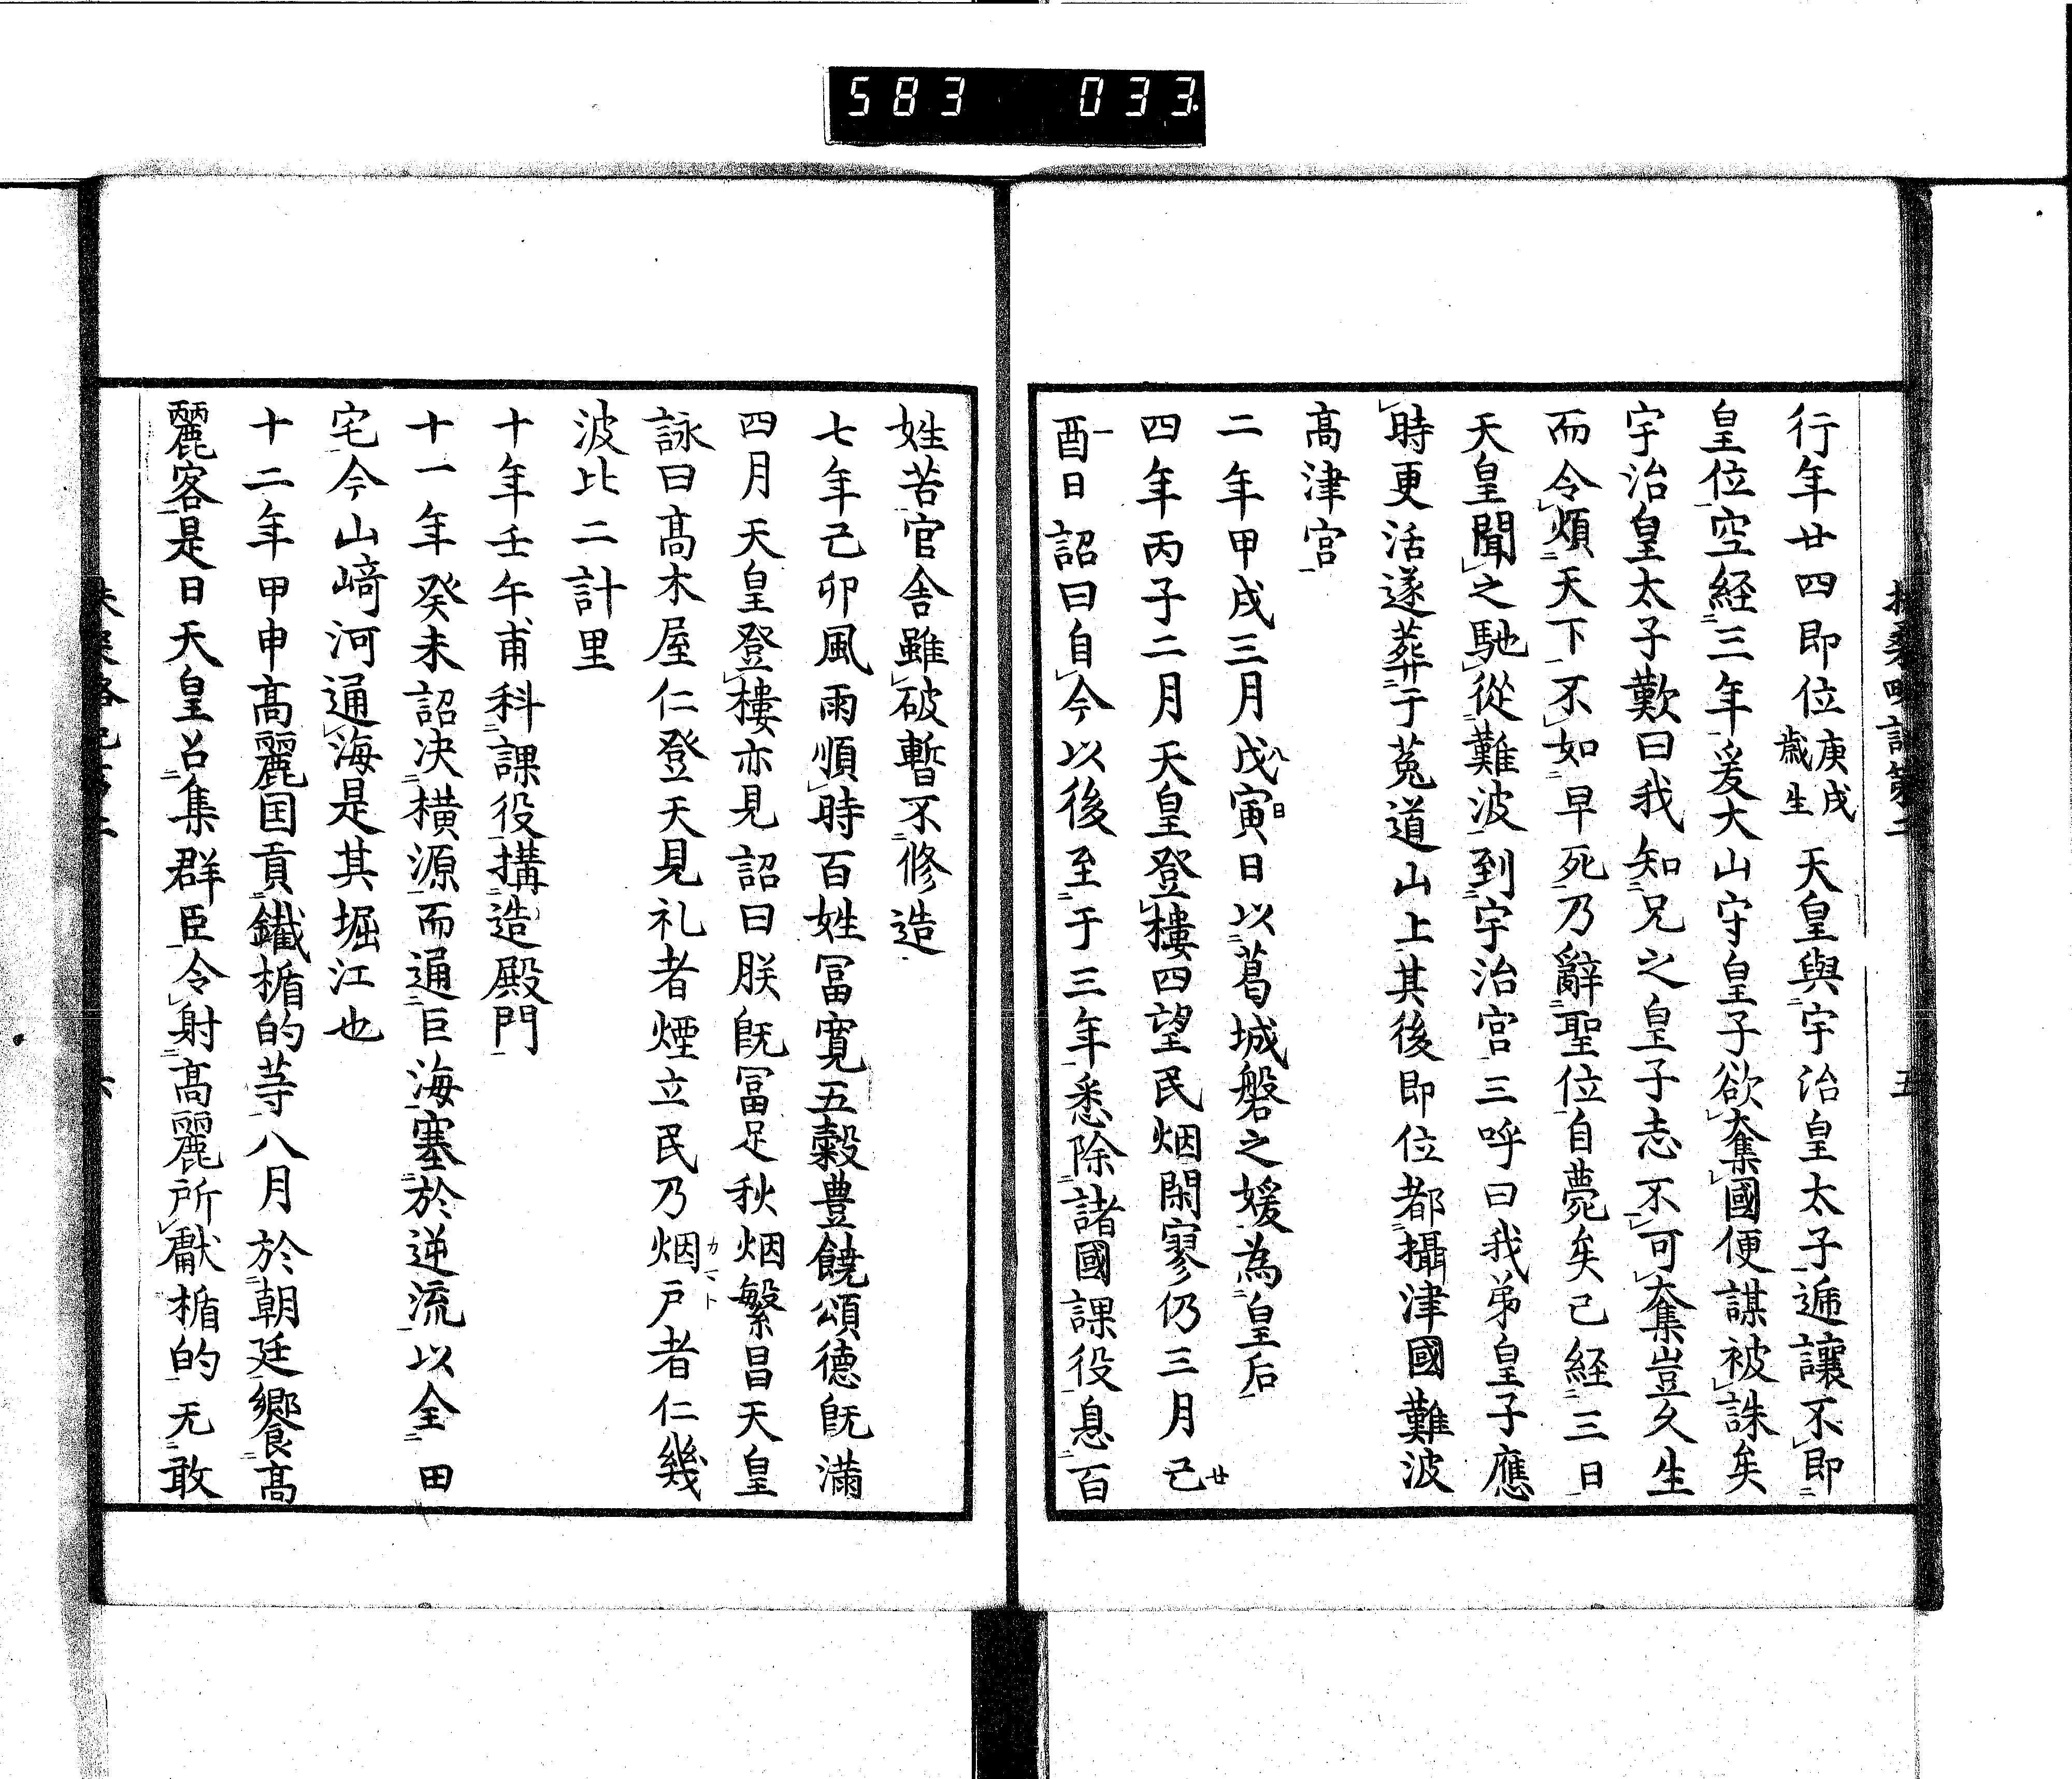 583 033
行年廿四即位庚戌歳生天皇與宇治皇太子逓讓不即
皇位空経三年爰大山守皇子欲奪國便謀被誅矣
宇治皇太子歎曰我知兄之皇子志不可奪豈久生
而令煩天下不如早死乃辭聖位自薨矣己経三日
天皇聞之馳從難波到宇治宮三呼曰我弟皇子應
時更活遂葬于菟道山上其後即位都攝津國難波
髙津宮
二年甲戌三月戊寅日以葛城磐之媛為皇后
四年丙子二月天皇登樓四望民烟閑寥仍三月己
酉日詔曰自今以後至于三年悉除諸國課役息百
姓苦官舎雖破暫不修造
七年己卯風雨順時百姓冨寛五穀豊饒頌德既滿
四月天皇登樓亦見詔曰朕既冨足秋烟繁昌天皇
詠曰髙木屋仁登天見礼者煙立民乃烟戸者仁幾
波比二計里
十年壬午甫科課役搆造殿門
十一年癸未詔决横源而通巨海塞於逆流以全田
宅今山﨑河通海是其堀江也
十二年甲申髙麗国貢鐵楯的等八月於朝廷饗髙
麗客是日天皇召集群臣令射髙麗所獻楯的无敢